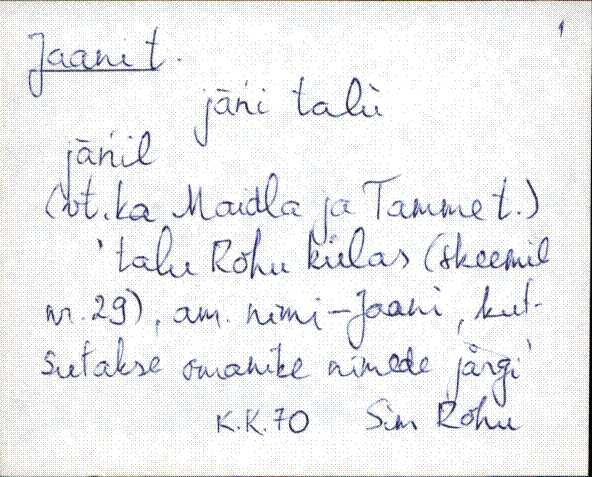 Jaani t.
jāńi talù
jāńil
(vt. ka Maidla ja Tamme t.)
'talu Rõhu külas (skeemil
nr. 29), am. nimi - Jaani, kut-
sutakse omanike nimede järgi'
K.K.70 Sim Rõhu